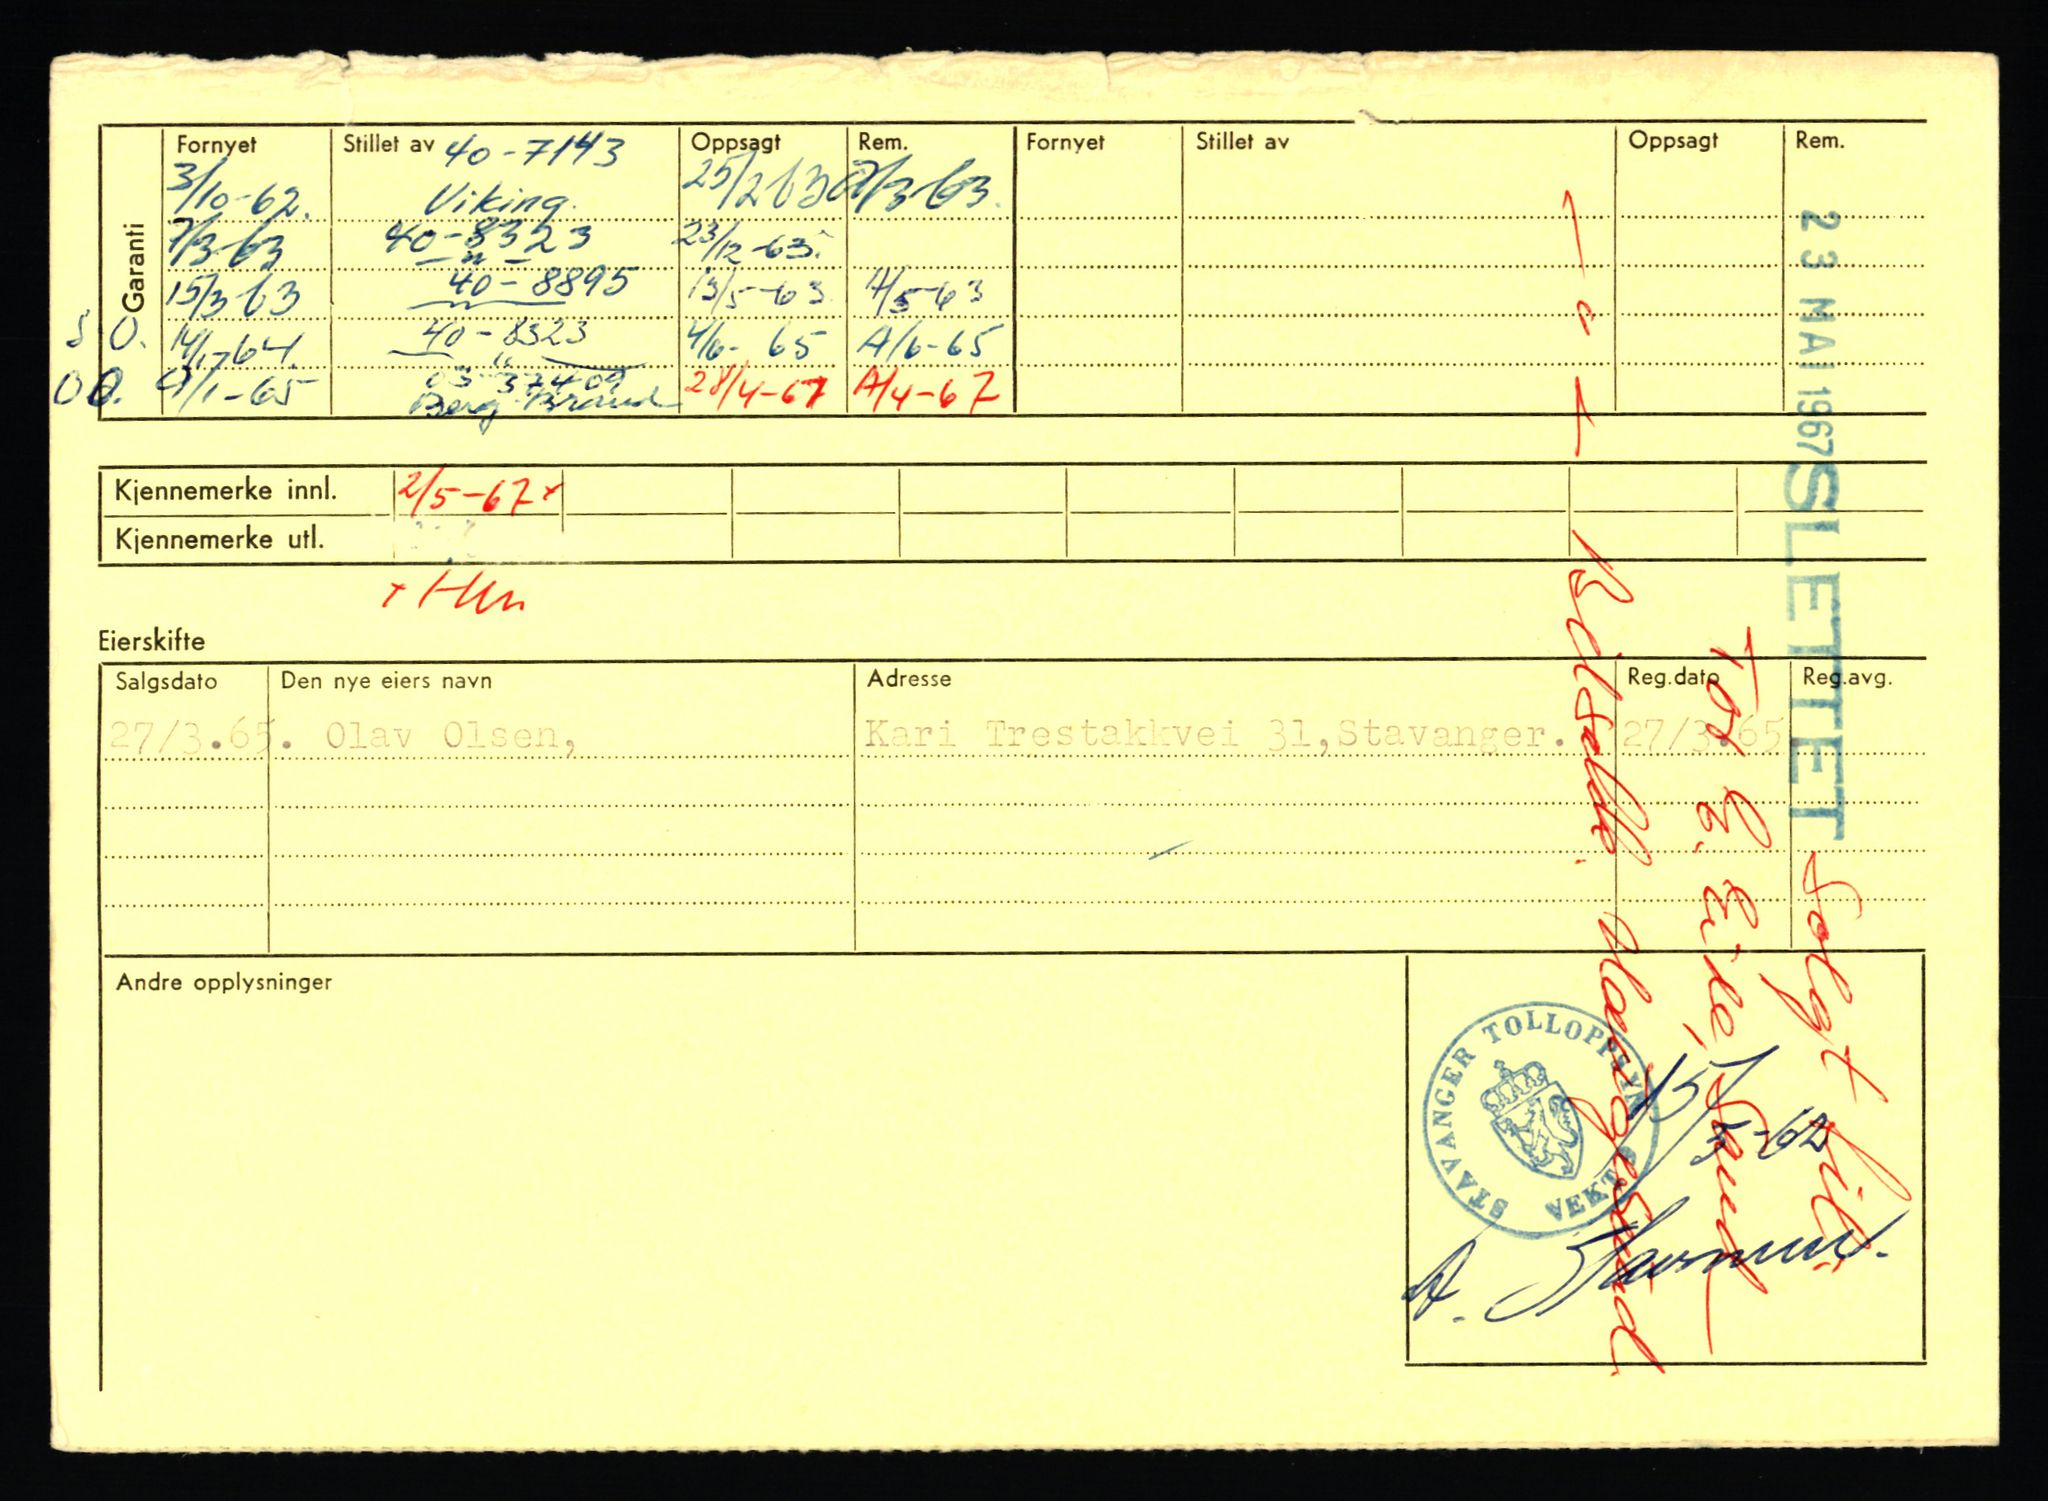 Garanti
Fornyet Stillet av Oppsagt Rem. Fornyet Stillet av Oppsagt Rem.
40-7143
3/10-62. Viking. 25/2 63 /3-63.
7/3-63 40-8323 23/12-63.
15/3 63 40-8895 13/5-63 A/5-63
S O. 64. 40-8323 4/6-65 A/6-65
O O. /1-65 03-37409 28/4-67 A/4-67
Berg Brand
Kjennemerke innl. 2/5-67 x
Kjennemerke utl.
x
Eierskifte
Salgsdato Den nye eiers navn Adresse Reg.dato Reg.avg.
27/3.65. Olav Olsen, Kari Trestakkvei 31, Stavanger. 27/3.65
Andre opplysninger
23 MAI 1967 SLETTET
Solgt til:
Tor E. Eide, Sand
Bilsakk. Haugesund.
STAVANGER TOLLOPPSYN
VEKT
15/3-62